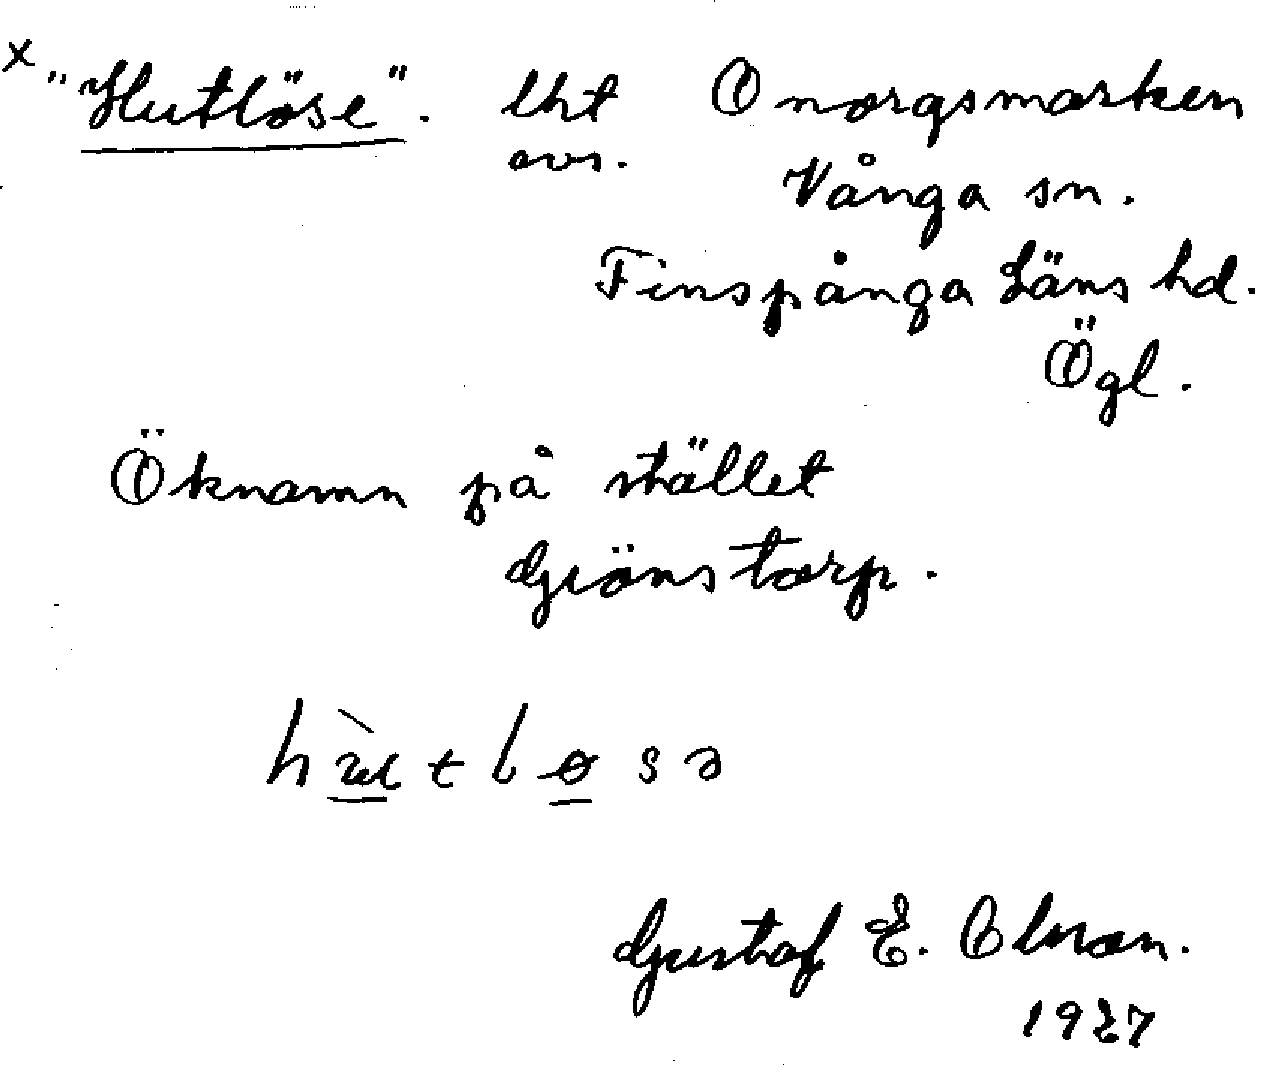 x "Hutlöse". lht Onorgsmarken
avs. Vånga sn.
Finspånga Läns hd.
Ögl.
Öknamn på stället
Grönstorp.
Gustaf E. Olsson.
1927